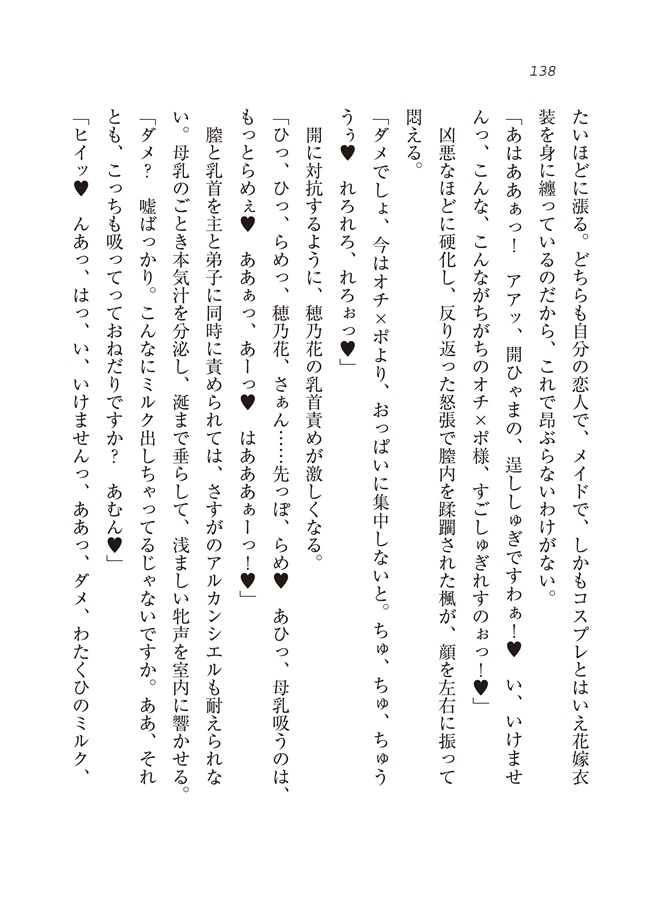 138
たいほどに漲る。どちらも自分の恋人で、メイドで、しかもコスプレとはいえ花嫁衣
装を身に纏っているのだから、これで昂ぶらないわけがない。
「あはああぁっ！　アアッ、開ひゃまの、逞ししゅぎですわぁ！♥　い、いけませ
んっ、こんな、こんながちがちのオチ×ポ様、すごしゅぎれすのぉっ！♥」
凶悪なほどに硬化し、反り返った怒張で膣内を蹂躙された楓が、顔を左右に振って
悶える。
「ダメでしょ、今はオチ×ポより、おっぱいに集中しないと。ちゅ、ちゅ、ちゅう
うぅ♥　れろれろ、れろぉっ♥」
開に対抗するように、穂乃花の乳首責めが激しくなる。
「ひっ、ひっ、らめっ、穂乃花、さぁん……先っぽ、らめ♥　あひっ、母乳吸うのは、
もっとらめぇ♥　ああぁっ、あーっ♥　はあああぁーっ！♥」
膣と乳首を主と弟子に同時に責められては、さすがのアルカンシエルも耐えられな
い。母乳のごとき本気汁を分泌し、涎まで垂らして、浅ましい牝声を室内に響かせる。
「ダメ？　嘘ばっかり。こんなにミルク出しちゃってるじゃないですか。ああ、それ
とも、こっちも吸ってっておねだりですか？　あむん♥」
「ヒイッ♥　んあっ、はっ、い、いけませんっ、ああっ、ダメ、わたくひのミルク、